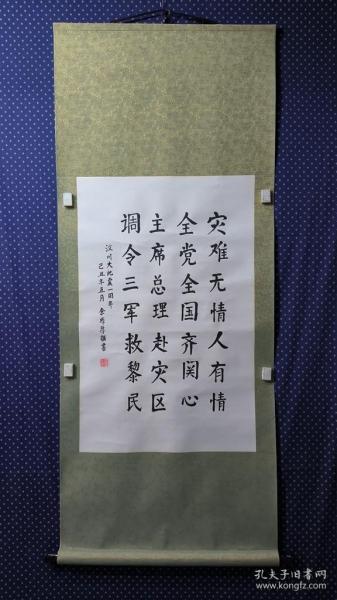 灾难无情人有情
全党全国齐关心
主席总理赴灾区
调令三军救黎民
汶川大地震一周年
己丑年五月
书
孔夫子旧书网
www.kongfz.com